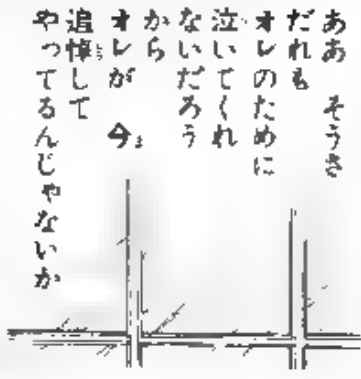 ああ　そうさ
だれも
オレのために
泣いてくれ
ないだろう
から
オレが　今
追悼して
やってるんじゃないか